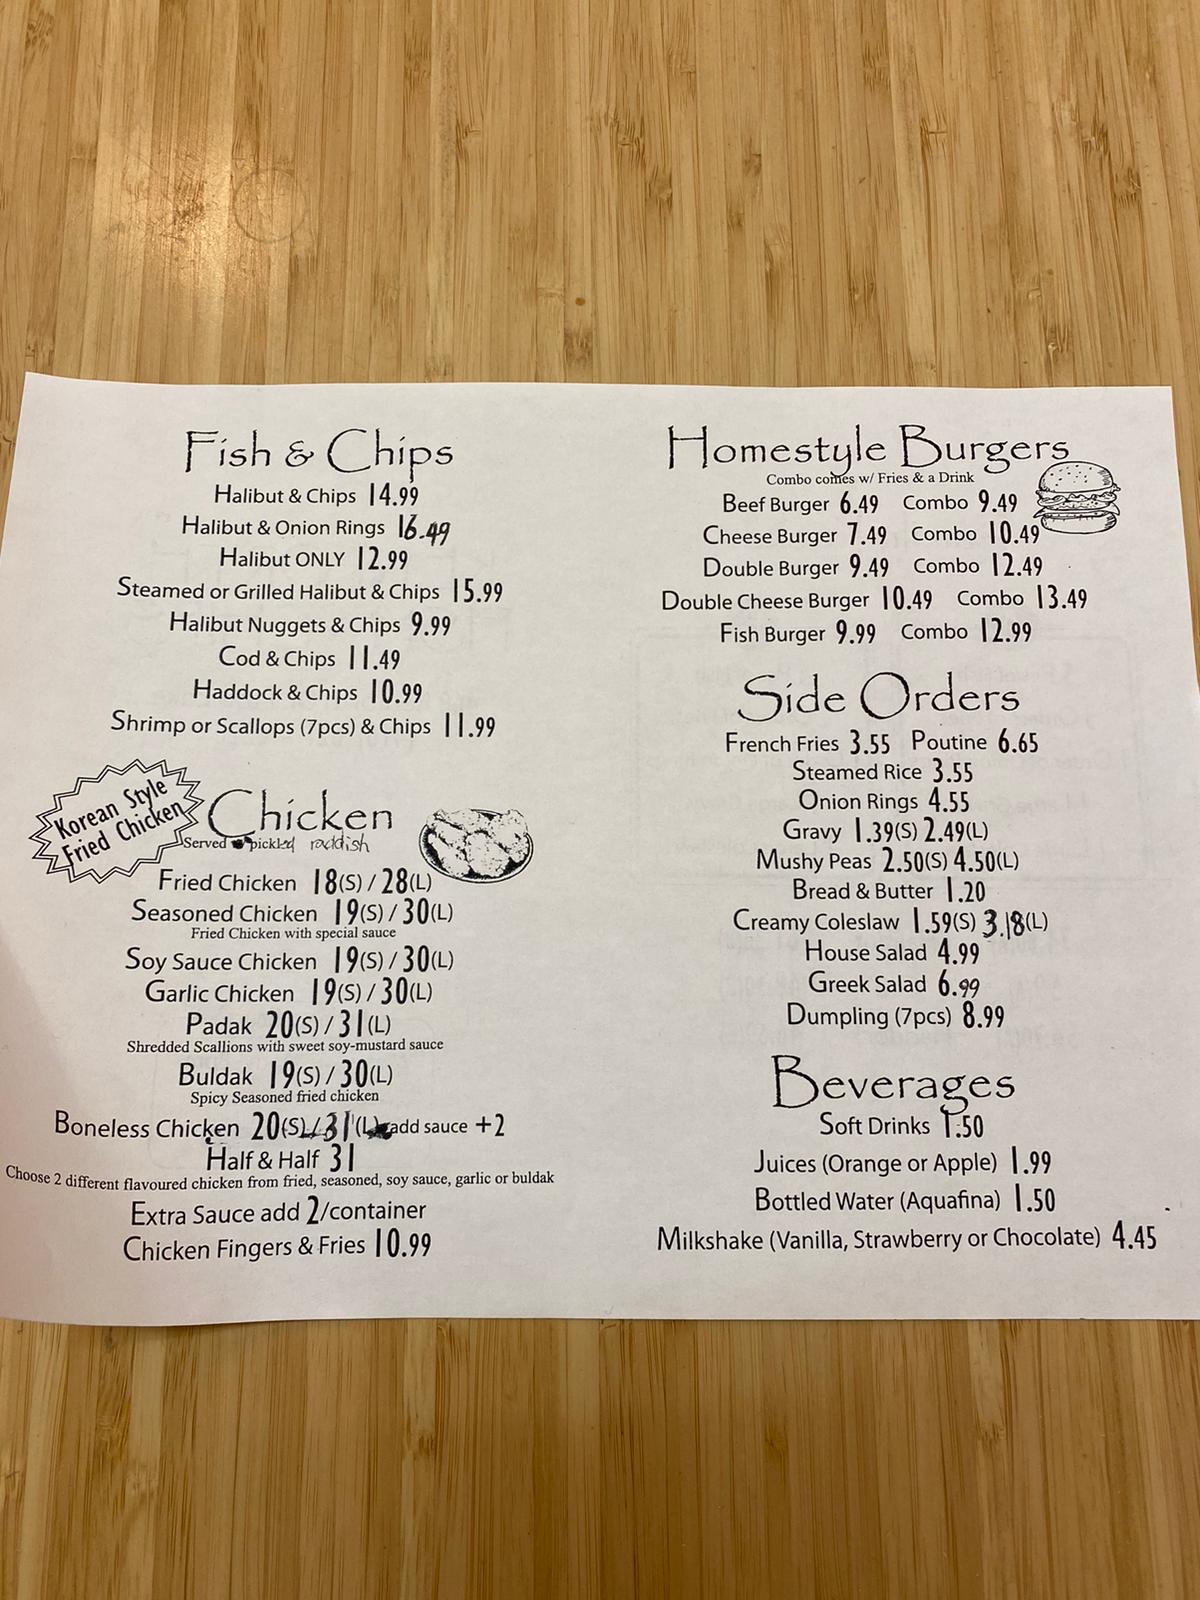 Fish & Chips
Halibut & Chips 14.99
Halibut & Onion Rings 16.49
Halibut ONLY 12.99
Steamed or Grilled Halibut & Chips 15.99
Halibut Nuggets & Chips 9.99
Cod & Chips 11.49
Haddock & Chips 10.99
Shrimp or Scallops (7pcs) & Chips 11.99
Korean Style
Fried Chicken
Chicken
Served pickled raddish
Fried Chicken 18(S) / 28(L)
Seasoned Chicken 19(S) / 30(L)
Fried Chicken with special sauce
Soy Sauce Chicken 19(S) / 30(L)
Garlic Chicken 19(S) / 30(L)
Padak 20(S) / 31(L)
Shredded Scallions with sweet soy-mustard sauce
Buldak 19(S) / 30(L)
Spicy Seasoned fried chicken
Boneless Chicken 20(S) / 31(L) add sauce +2
Half & Half 31
Choose 2 different flavoured chicken from fried, seasoned, soy sauce, garlic or buldak
Extra Sauce add 2/container
Chicken Fingers & Fries 10.99
Homestyle Burgers
Combo comes w/ Fries & a Drink
Beef Burger 6.49 Combo 9.49
Cheese Burger 7.49 Combo 10.49
Double Burger 9.49 Combo 12.49
Double Cheese Burger 10.49 Combo 13.49
Fish Burger 9.99 Combo 12.99
Side Orders
French Fries 3.55 Poutine 6.65
Steamed Rice 3.55
Onion Rings 4.55
Gravy 1.39(S) 2.49(L)
Mushy Peas 2.50(S) 4.50(L)
Bread & Butter 1.20
Creamy Coleslaw 1.59(S) 3.18(L)
House Salad 4.99
Greek Salad 6.99
Dumpling (7pcs) 8.99
Beverages
Soft Drinks 1.50
Juices (Orange or Apple) 1.99
Bottled Water (Aquafina) 1.50
Milkshake (Vanilla, Strawberry or Chocolate) 4.45